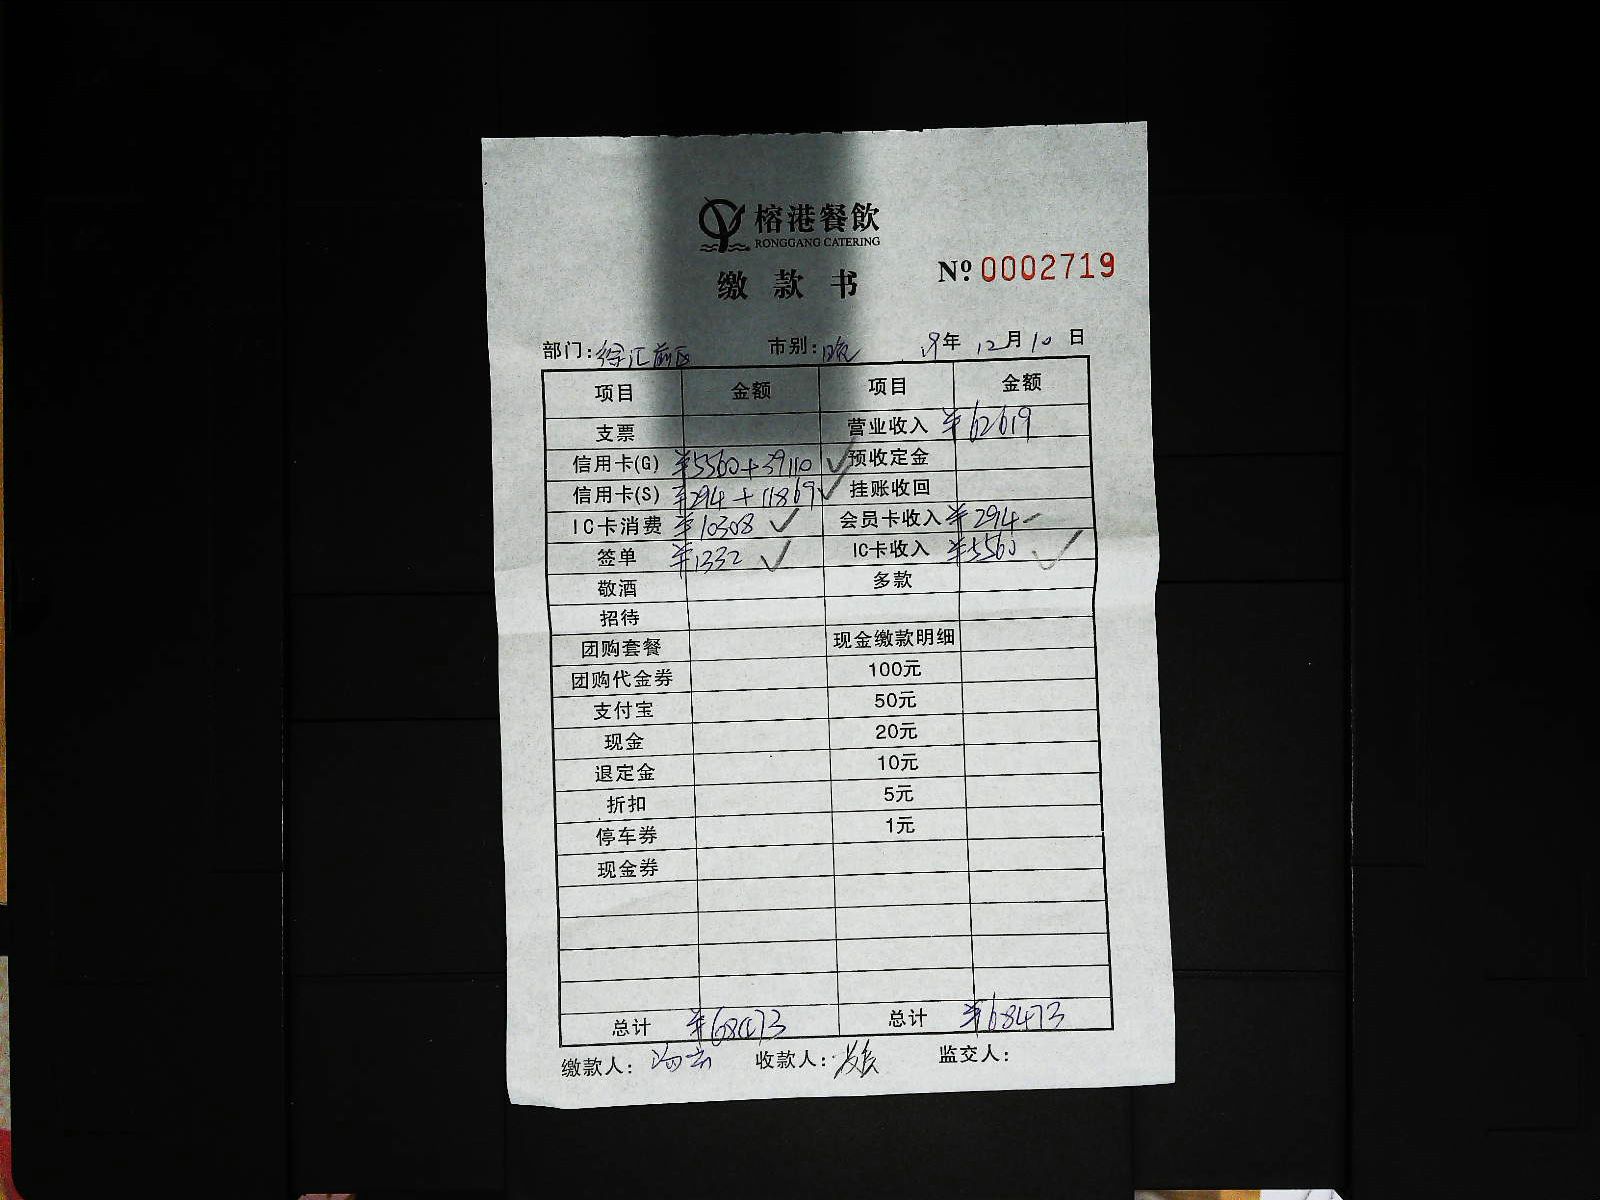 榕港餐飲
RONGGANG CATERING
缴款书
Nº 0002719
部门: 徐汇前区 市别: 晚 19年 12月10日
项目 金额 项目 金额
支票 营业收入 ¥62619
信用卡(G) ¥5560+39110 预收定金
信用卡(S) ¥294+11869 挂账收回
IC卡消费 ¥10308 会员卡收入 ¥294
签单 ¥1332 IC卡收入 ¥5560
敬酒 多款
招待
团购套餐 现金缴款明细
团购代金券 100元
支付宝 50元
现金 20元
退定金 10元
折扣 5元
停车券 1元
现金券
总计 ¥68473 总计 ¥68473
缴款人: 收款人: 监交人: